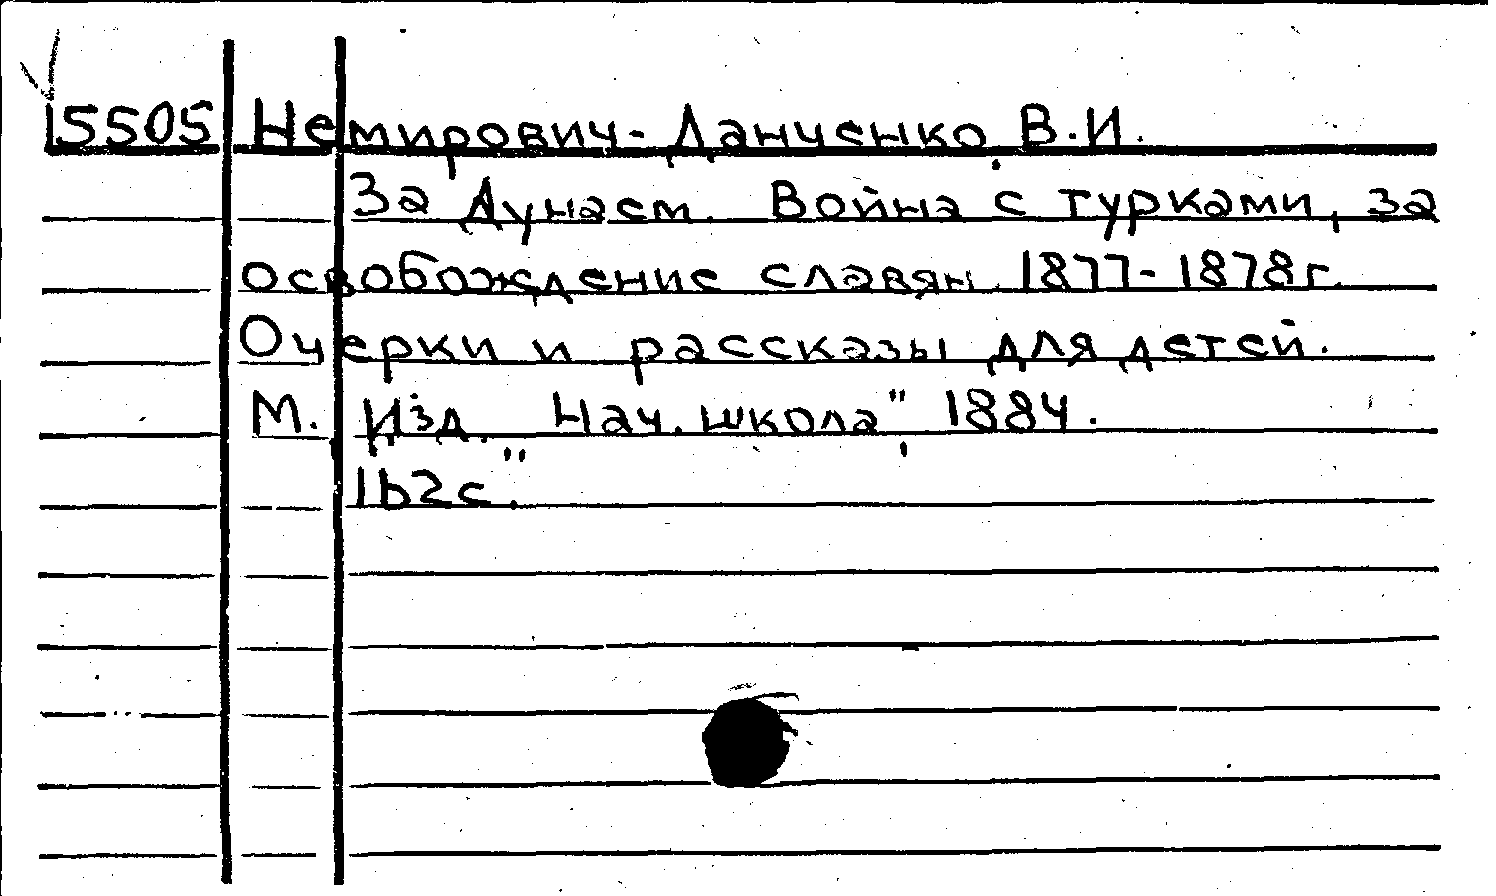 15505 Немирович-Данченко, В.И.
За Дунаем. Война с турками, за
освобождение славян. 1877-1878г.
Очерки и рассказы для детей.
М. Изд. „Нач. школа", 1884.
162с.